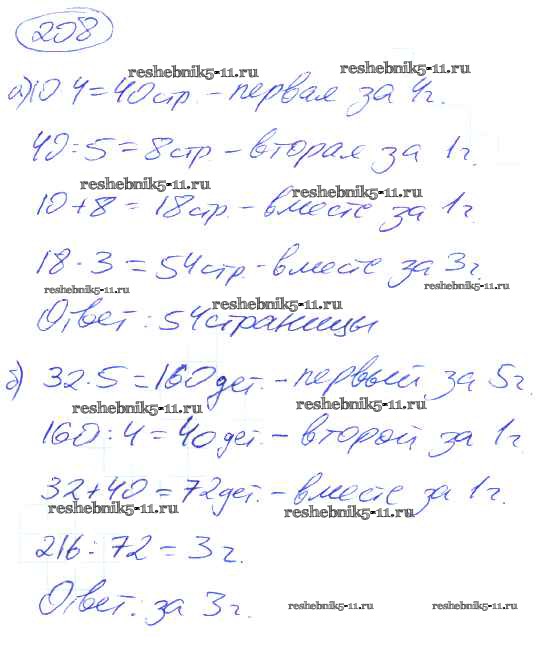 208
reshebnik5-11.ru reshebnik5-11.ru
а) 10 4 = 40 стр. - первая за 4г.
40 : 5 = 8 стр - вторая за 1 г.
reshebnik5-11.ru reshebnik5-11.ru
10 + 8 = 18 стр. - вместе за 1 г.
18 · 3 = 54 стр. - вместе за 3 г.
reshebnik5-11.ru reshebnik5-11.ru reshebnik5-11.ru
Ответ : 54 страницы
б) 32 · 5 = 160 дет. - первый за 5 г.
reshebnik5-11.ru reshebnik5-11.ru
160 : 4 = 40 дет. - второй за 1 г.
32 + 40 = 72 дет. - вместе за 1 г.
reshebnik5-11.ru reshebnik5-11.ru
216 : 72 = 3 г.
Ответ: за 3 г.
reshebnik5-11.ru reshebnik5-11.ru